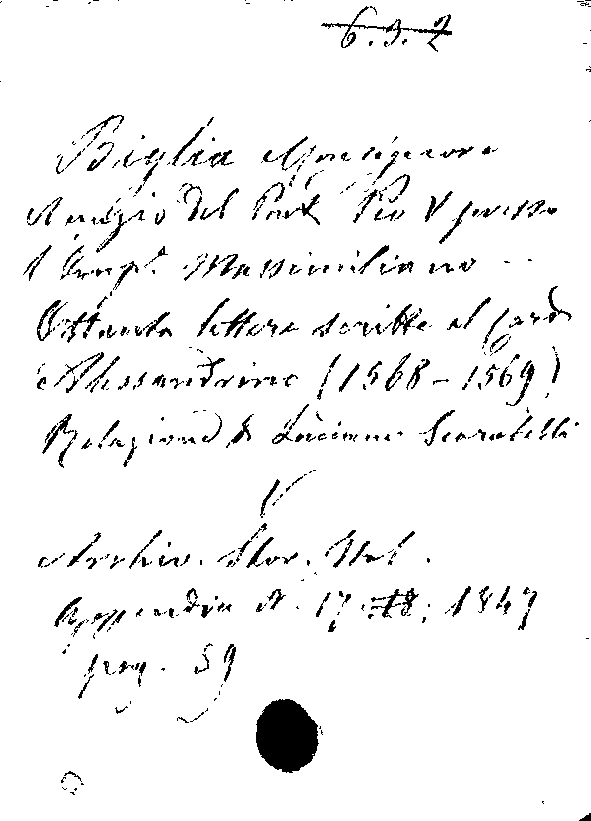 6.3.2
Biglia Monsignore
Nunzio del Pont. Pio V presso
l'Imp.e Massimiliano
Ottanta lettere scritte al Card
Alessandrino (1568-1569)
Relazione di Luciano Scarabelli
V
Archiv. Stor. Ital.
Appendice N. 17. 1847
pag. 59